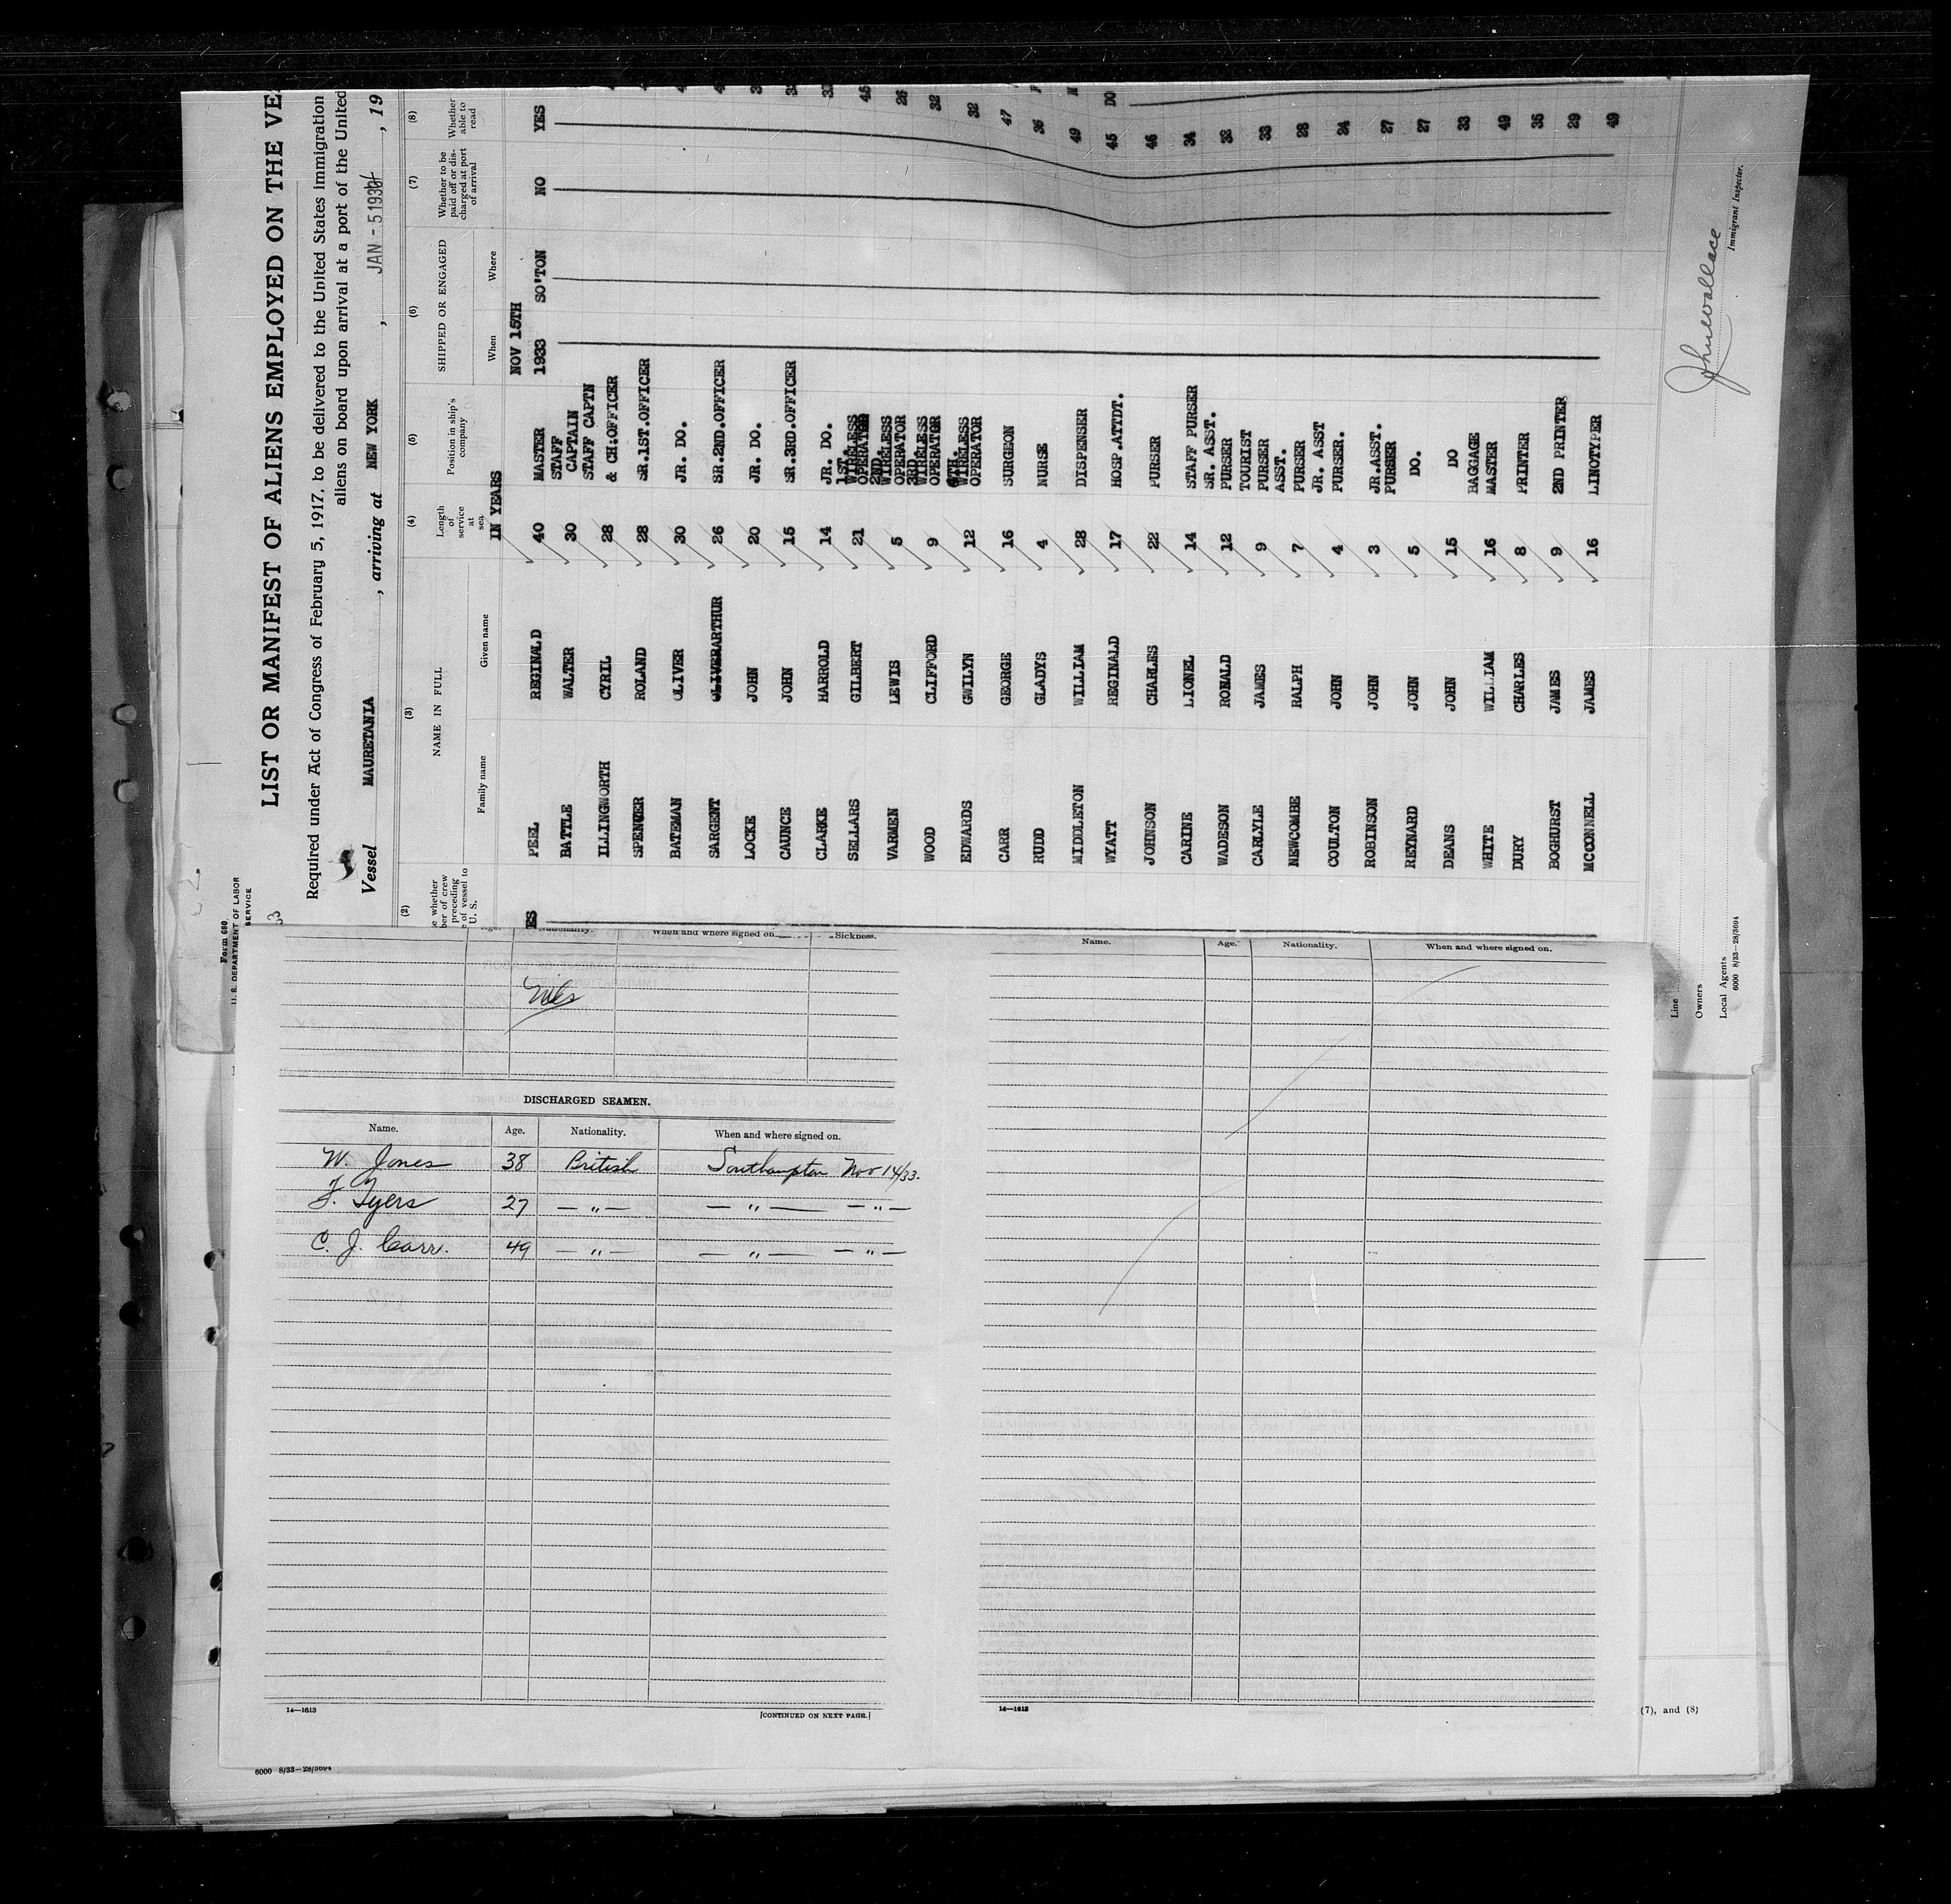 Form 680
U. S. DEPARTMENT OF LABOR
SERVICE
3
LIST OR MANIFEST OF ALIENS EMPLOYED ON THE VE
Required under Act of Congress of February 5, 1917, to be delivered to the United States Immigration
aliens on board upon arrival at a port of the United
Vessel MAURETANIA , arriving at NEW YORK , JAN - 5 1934 , 19
(2) (3) (4) (5) (6) (7) (8)
NAME IN FULL
Family name Given name
Length of service at sea
Position in ship's company
SHIPPED OR ENGAGED
When Where
Whether to be paid off or discharged at port of arrival
Whether able to read
IN YEARS
NOV 15TH
PEEL REGINALD 40 MASTER 1933 SO'TON NO YES
BATTLE WALTER 30 STAFF CAPTAIN
ILLINGWORTH CYRIL 28 STAFF CAPTN & CH:OFFICER
SPENCER ROLAND 28 SR.1ST.OFFICER
BATEMAN OLIVER 30 JR. DO.
SARGENT ARTHUR 26 SR.2ND.OFFICER
LOCKE JOHN 20 JR. DO.
CAUNCE JOHN 15 SR.3RD.OFFICER
CLARKE HARROLD 14 JR. DO.
SELLARS GILBERT 21 1ST. WIRELESS OPERATOR 45
VARMEN LEWIS 5 2ND. WIRELESS OPERATOR 26
WOOD CLIFFORD 9 3RD WIRELESS OPERATOR 32
EDWARDS GWILYN 12 4TH. WIRELESS OPERATOR 32
CARR GEORGE 16 SURGEON 47
RUDD GLADYS 4 NURSE 36
MIDDLETON WILLIAM 28 DISPENSER 49
WYATT REGINALD 17 HOSP.ATTDT. 45 DO
JOHNSON CHARLES 22 PURSER 46
CARINE LIONEL 14 STAFF PURSER 34
WADESON RONALD 12 SR. ASST. PURSER 32
CARLYLE JAMES 9 TOURIST PURSER 33
NEWCOMBE RALPH 7 ASST. PURSER 28
COULTON JOHN 4 JR. ASST PURSER. 24
ROBINSON JOHN 3 JR.ASST. PURSER 27
REYNARD JOHN 5 DO. 27
DEANS JOHN 15 DO 33
WHITE WILLIAM 16 BAGGAGE MASTER 49
DURY CHARLES 8 PRINTER 35
BOGHURST JAMES 9 2ND PRINTER 29
MCCONNELL JAMES 16 LINOTYPER 49
Immigrant Inspector.
Line
Owners
Local Agents
6000 8/33—28/3694
Nationality. When and where signed on. Sickness.
DISCHARGED SEAMEN.
Name. Age. Nationality. When and where signed on.
W. Jones 38 British Southampton Nov 14/33.
F. Tyers 27 — " — — " — — " —
C. J. Carr. 49 — " — — " — — " —
14—1613
[CONTINUED ON NEXT PAGE.]
Name. Age. Nationality. When and where signed on.
14—1613
(7), and (8)
6000 8/33—28/3694